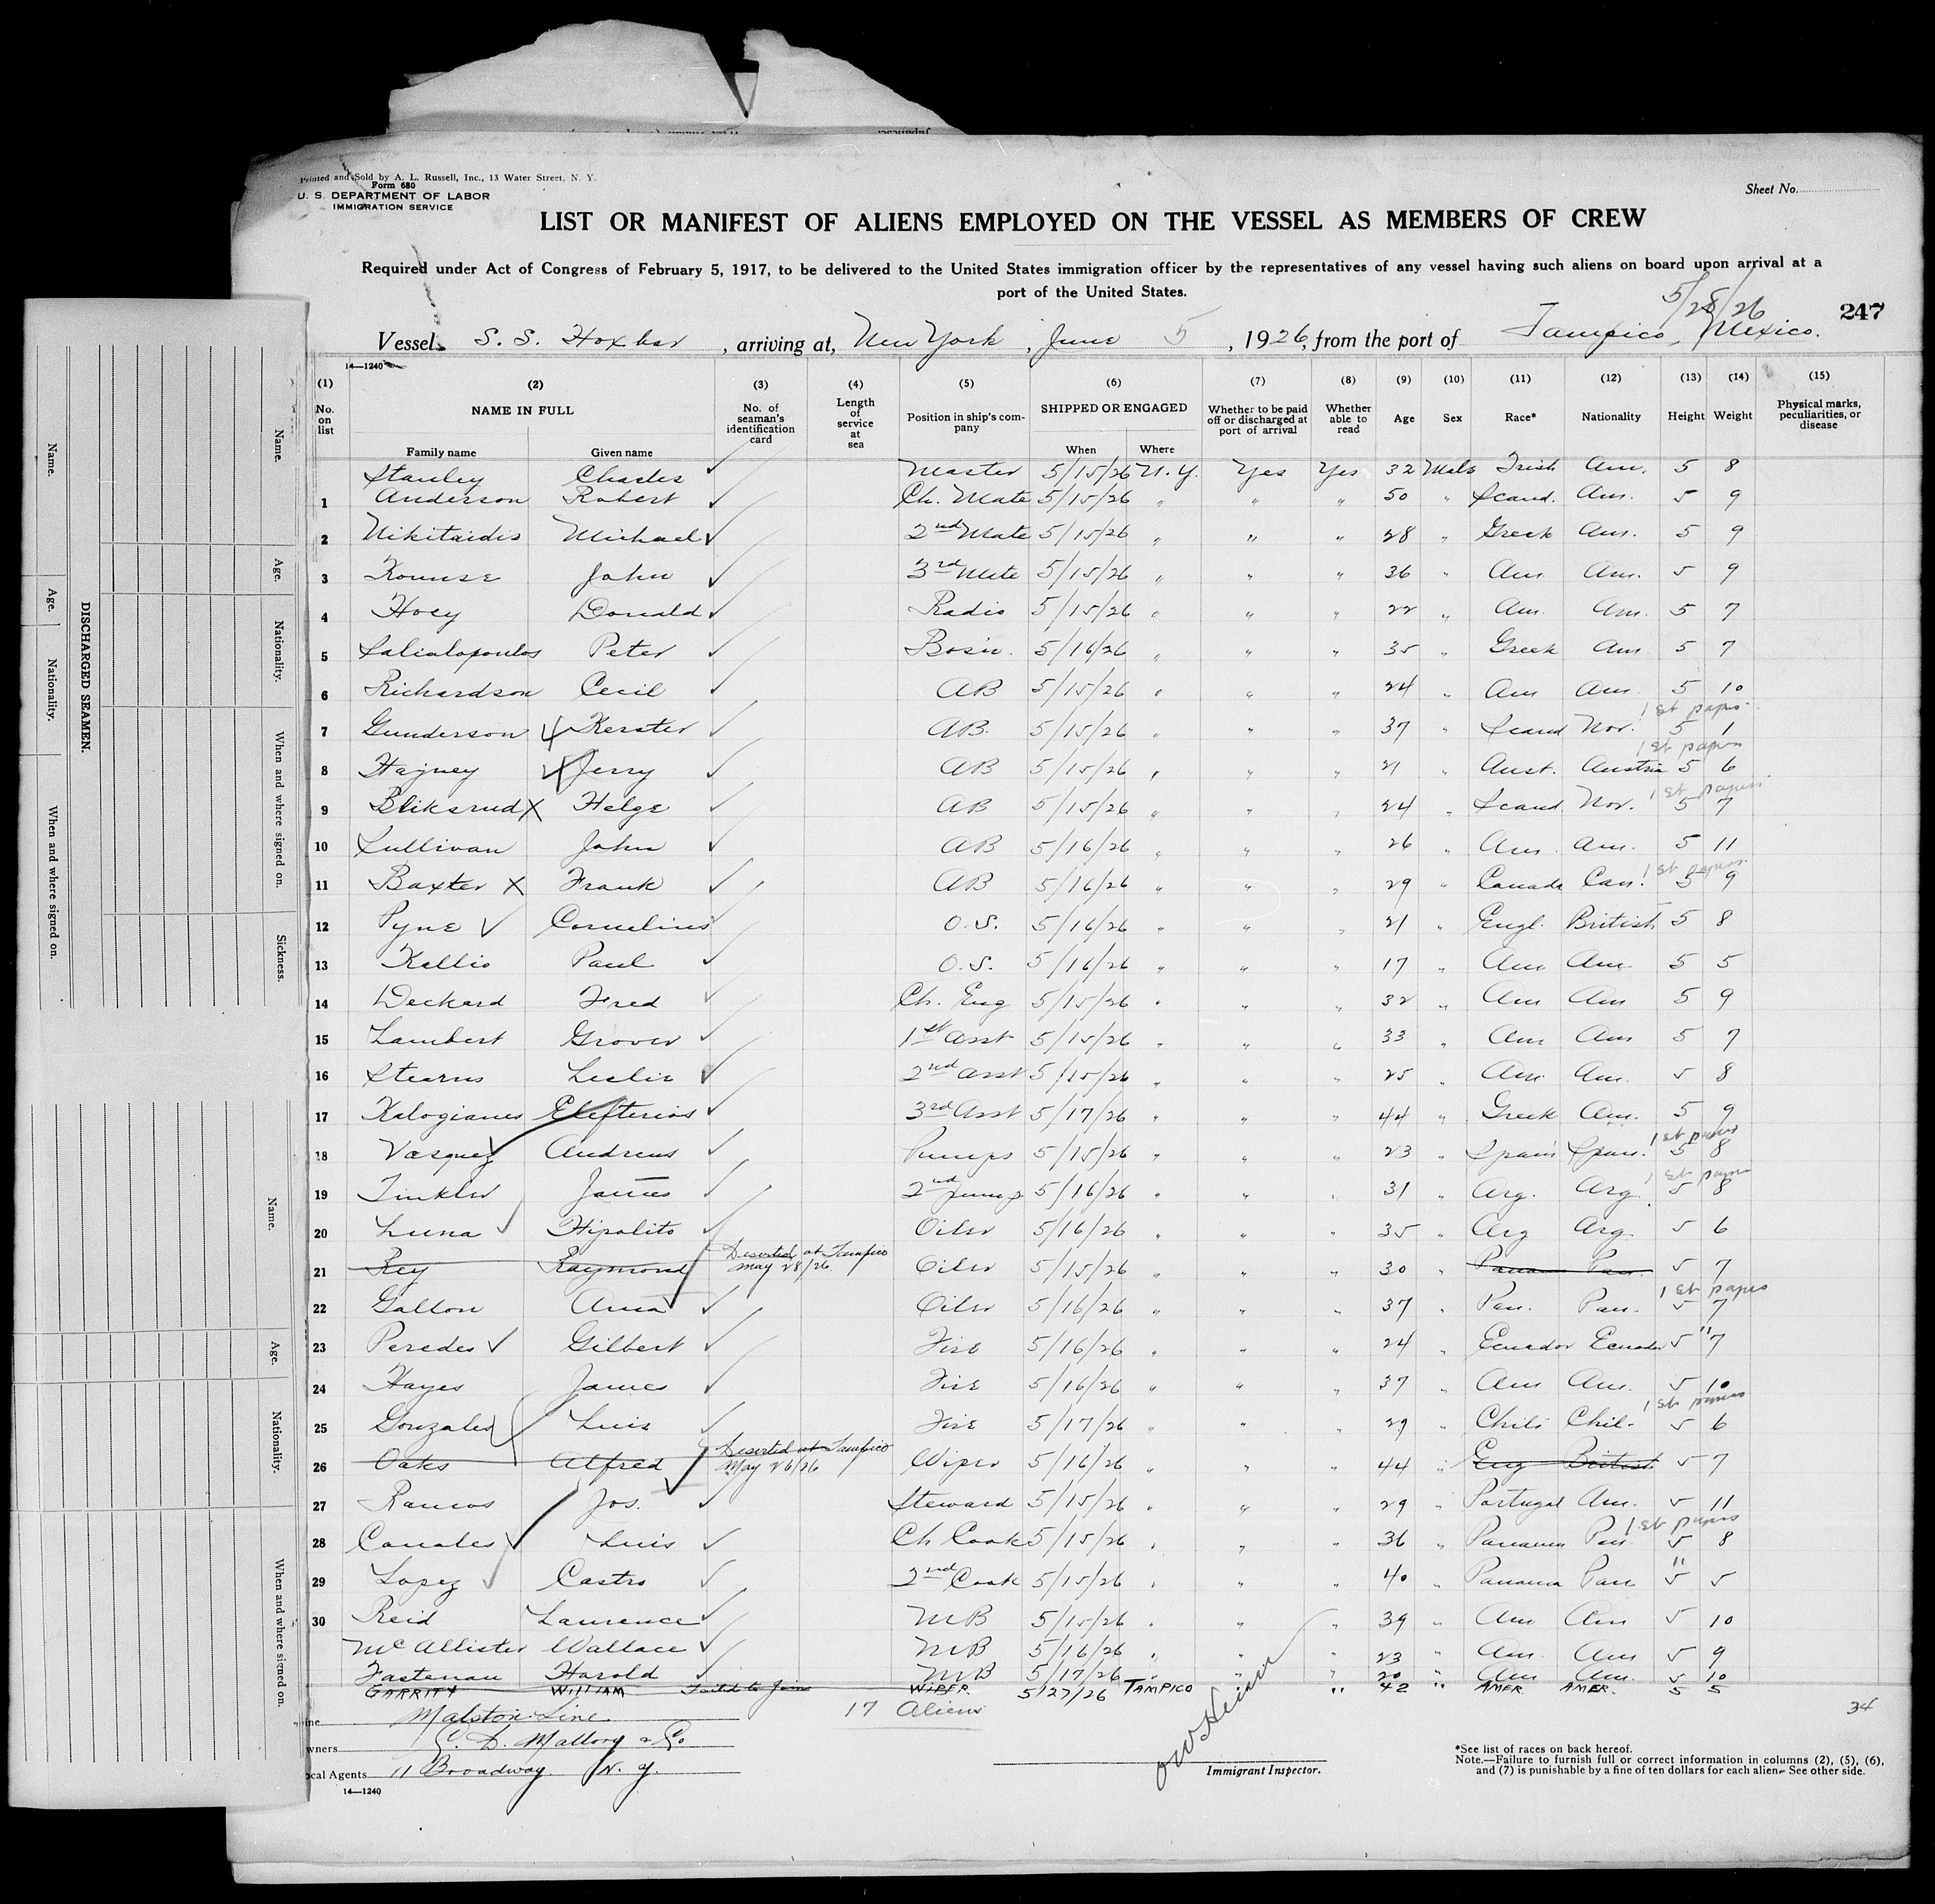 Printed and Sold by A. L. Russell, Inc., 13 Water Street, N. Y.
Form 680
U. S. DEPARTMENT OF LABOR
IMMIGRATION SERVICE
Sheet No.
LIST OR MANIFEST OF ALIENS EMPLOYED ON THE VESSEL AS MEMBERS OF CREW
Required under Act of Congress of February 5, 1917, to be delivered to the United States immigration officer by the representatives of any vessel having such aliens on board upon arrival at a
port of the United States.
5/28/26
247
Vessel S. S. Hoxbar, arriving at, New York, June 5, 1926, from the port of Tampico, Mexico.
14—1240
(1) (2) (3) (4) (5) (6) (7) (8) (9) (10) (11) (12) (13) (14) (15)
No. on list NAME IN FULL No. of seaman's identification card Length of service at sea Position in ship's company SHIPPED OR ENGAGED Whether to be paid off or discharged at port of arrival Whether able to read Age Sex Race* Nationality Height Weight Physical marks, peculiarities, or disease
Family name Given name When Where
Stanley Charles Master 5/15/26 N.Y. Yes Yes 32 Male Irish Am. 5 8
1 Anderson Robert Ch. Mate 5/15/26 " " " 50 " Scand. Am. 5 9
2 Nikitaidis Michael 2nd Mate 5/15/26 " " " 28 " Greek Am. 5 9
3 Kounse John 3rd Mate 5/15/26 " " " 36 " Am. Am. 5 9
4 Hoey Donald Radio 5/15/26 " " " 22 " Am. Am. 5 7
5 Salialopoulos Peter Bosn. 5/16/26 " " " 35 " Greek Am 5 7
6 Richardson Cecil AB 5/15/26 " " " 24 " Am Am 5 10
1st papr.
7 Gunderson Kerster AB. 5/15/26 " " " 37 " Scand Nor. 5 1
1st papers
8 Hajney Jerry AB 5/15/26 " " " 21 " Aust. Austria 5 6
1st papers
9 Bliksrud X Helge AB 5/15/26 " " " 24 " Scand. Nor. 5 7
10 Sullivan John AB 5/16/26 " " " 26 " Am. Am. 5 11
1st papers
11 Baxter X Frank AB 5/16/26 " " " 29 " Canada Can. 5 9
12 Pyne Cornelius O.S. 5/16/26 " " " 21 " Engl. British 5 8
13 Kallio Paul O.S. 5/16/26 " " " 17 " Am Am 5 5
14 Deckard Fred Ch. Eng 5/15/26 " " " 32 " Am Am 5 9
15 Lambert Grover 1st Asst 5/15/26 " " " 33 " Am Am 5 7
16 Stearns Leslie 2nd Asst 5/15/26 " " " 25 " Am. Am. 5 8
17 Kalogianes Elefterios 3rd Asst 5/17/26 " " " 44 " Greek Am. 5 9
1st papers
18 Vasquez Andreus Pumps 5/15/26 " " " 23 " Spain Span. 5 8
1st papers
19 Tinkler James 2nd pump 5/16/26 " " " 31 " Arg. Arg. 5 8
20 Luna Hipolito Oiler 5/16/26 " " " 35 " Arg Arg. 5 6
Deserted at Tampico
21 Rey Raymond May 28/26 Oiler 5/15/26 " " " 30 " Panama Pan. 5 7
1st papers
22 Gallon Ama Oiler 5/16/26 " " " 37 " Pan. Pan. 5 7
23 Paredes Gilbert Fire 5/16/26 " " " 24 " Ecuador Ecuador 5 " 7
24 Hayes James Fire 5/16/26 " " " 37 " Am Am. 5 10
1st papers
25 Gonzales Luis Fire 5/17/26 " " " 29 " Chili Chil. 5 6
Deserted at Tampico
26 Oaks Alfred May 26/26 Wiper 5/16/26 " " " 44 " Eng British 5 7
27 Ramos Jos. Steward 5/15/26 " " " 29 " Portugal Am. 5 11
1st papers
28 Canales Luis Ch Cook 5/15/26 " " " 36 " Panama Pan 5 8
29 Lopez Castro 2nd Cook 5/15/26 " " " 40 " Panama Pan " 5 5
30 Reid Laurence MB 5/15/26 " " " 39 " Am Am 5 10
McAllister Wallace MB 5/16/26 " " " 23 " Am. Am 5 9
Fastenau Harold MB 5/17/26 " " " 20 " Am Am. 5 10
GARRITY WILLIAM Failed to Join WIPER 5/27/26 TAMPICO " " 42 " AMER. AMER. 5 5
17 Aliens
34
Line Malston Line
Owners C. D. Mallory & Co
Local Agents 11 Broadway N. Y.
Immigrant Inspector.
14—1240
*See list of races on back hereof.
Note.—Failure to furnish full or correct information in columns (2), (5), (6),
and (7) is punishable by a fine of ten dollars for each alien. See other side.
DISCHARGED SEAMEN.
Name. Age. Nationality. When and where signed on.
Name. Age. Nationality. When and where signed on. Sickness.
Name. Age. Nationality. When and where signed on.